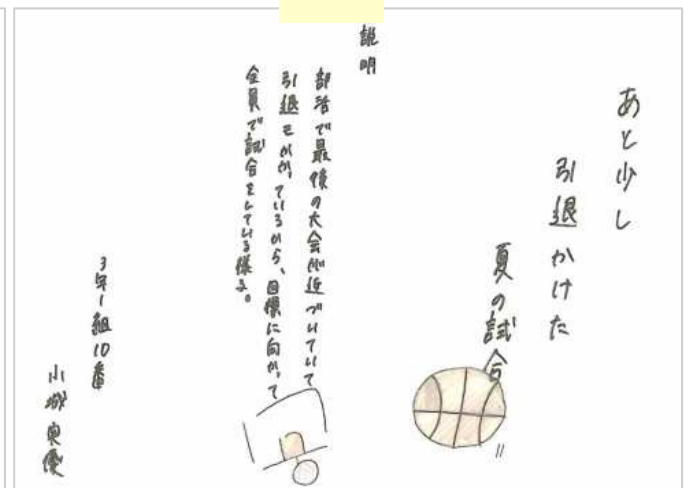 あと少し
引退かけた
夏の試合
説明
部活で最後の大会が近づいていて
引退もかかっているから、目標に向かって
全員で試合をしている様子。
3年1組10番
小城